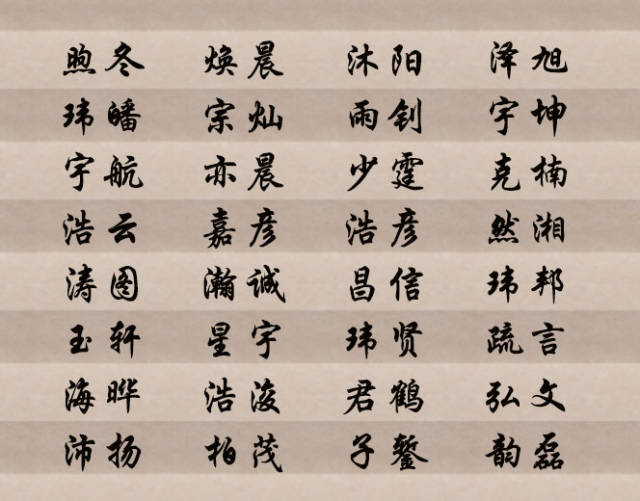 煦冬 焕晨 沐阳 泽旭
玮皤 宗灿 雨钊 宇坤
宇航 亦晨 少霆 克楠
浩云 嘉彦 浩彦 然湘
涛图 瀚诚 昌信 玮邦
玉轩 星宇 玮贤 疏言
海晔 浩浚 君鹤 弘文
沛扬 柏茂 子錾 韵磊